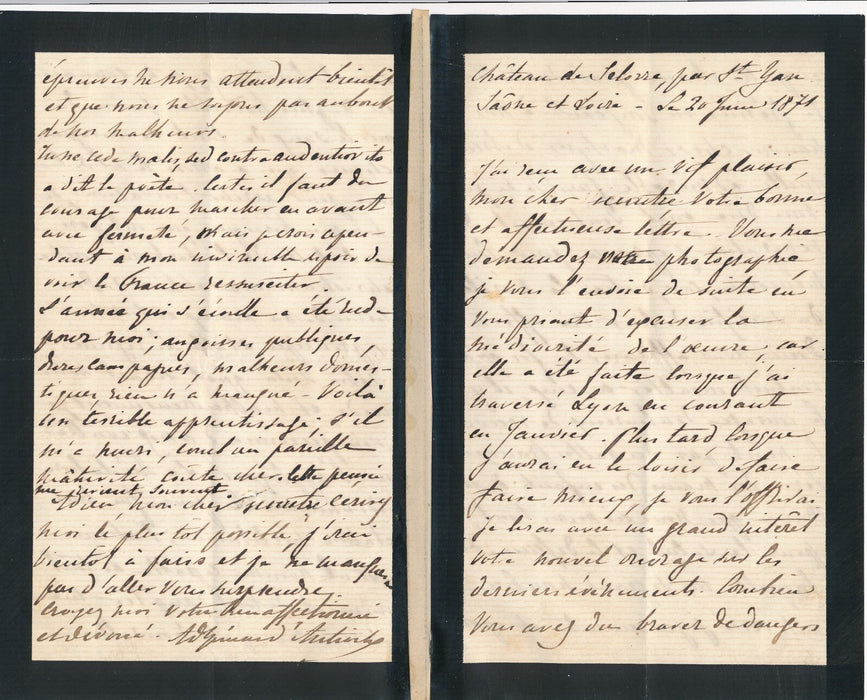 Château de Selorre, par St Yan
Saône et Loire - Le 20 Juin 1871
J'ai reçu avec un vif plaisir,
mon cher votre bonne
et affectueuse lettre. Vous me
demandez photographie
je vous l'envoie de suite en
vous priant d'excuser la
médiocrité de l'œuvre, car
elle a été faite lorsque j'ai
traversé Lyon en courant
en Janvier. Plus tard lorsque
j'aurai eu le loisir d'en faire
faire mieux, je vous l'offrirai
je lirai avec un grand intérêt
votre nouvel ouvrage sur les
derniers événements. Combien
vous avez du braver de dangers
épreuves ne nous attendent bientôt
et que nous ne soyons pas au bout
de nos malheurs.
Tu ne cede malis, sed contra audentior ito
a dit le poëte. Certes il faut du
courage pour marcher en avant
avec fermeté, mais je crois cepen-
dant à mon invincible espoir de
voir la France ressusciter.
L'année qui s'écoule a été
pour moi; angoisses publiques,
dures campagnes, malheurs domes-
tiques, rien n'a manqué - Voilà
un terrible apprentissage; s'il
m'a muri, combien pareille
maturité coûte cher. Cette pensée
me revient souvent
Adieu mon cher écrivez
moi le plus tot possible, j'irai
bientot à Paris et je ne manquerai
pas d'aller vous surprendre.
Croyez moi votre bien affectionné
et dévoué.